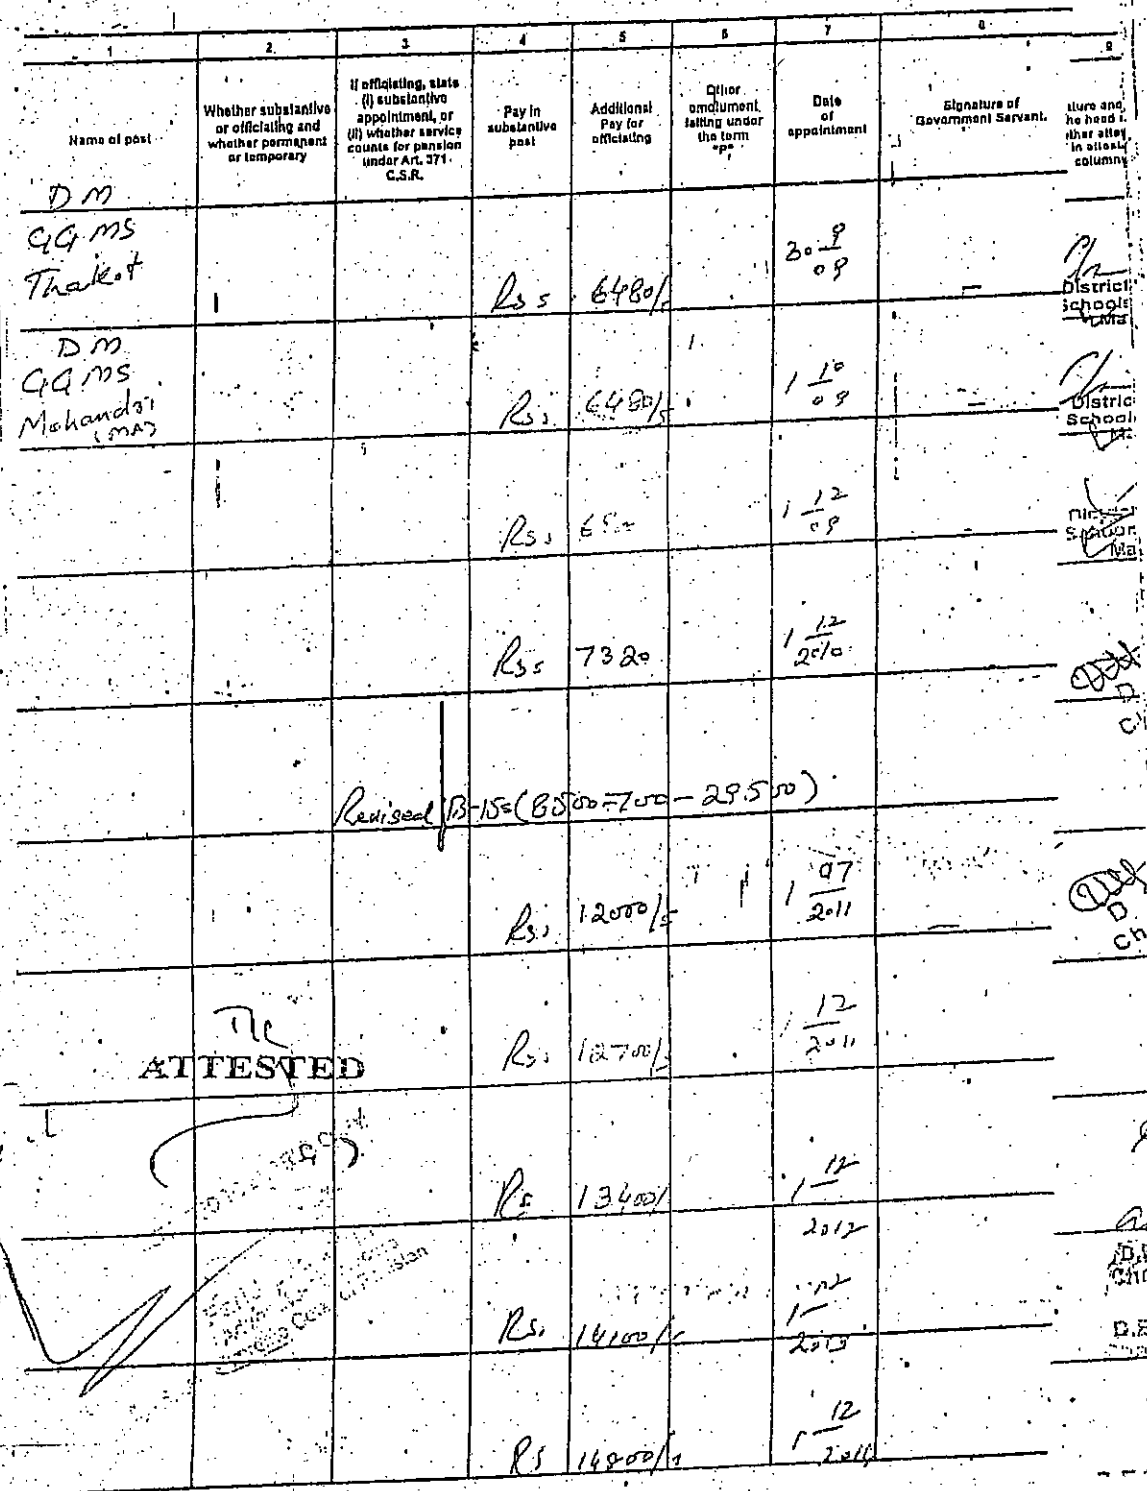 1 2 3 4 5 6 7 8 9
Name of post
Whether substantive
or officiating and
whether permanent
or temporary
If officiating, state
(i) substantive
appointment, or
(ii) whether service
counts for pension
under Art. 371
C.S.R.
Pay in
substantive
post
Additional
Pay for
officiating
Other
emolument
falling under
the term
"P"
Date
of
appointment
Signature of
Government Servant.
ture and
he head
ther attes
in attest
column
DM
GGMS
Thakot
Rs 6480/
30 9 09
District
Schools
Ma
DM
GGMS
Mohandri
(MA)
Rs 6480/
1 10 09
Distric
School
Rs
1 12 09
Ma
Rs 7320
1 12 2010
D
Revised B-15 (8500-700-29500)
Rs 12000/
1 07 2011
D.
Ch
Rs 12700/
1 12 2011
ATTESTED
Rs 13400/
1 12 2012
Rs. 14100/
1 12 2013
Rs 14800/
1 12